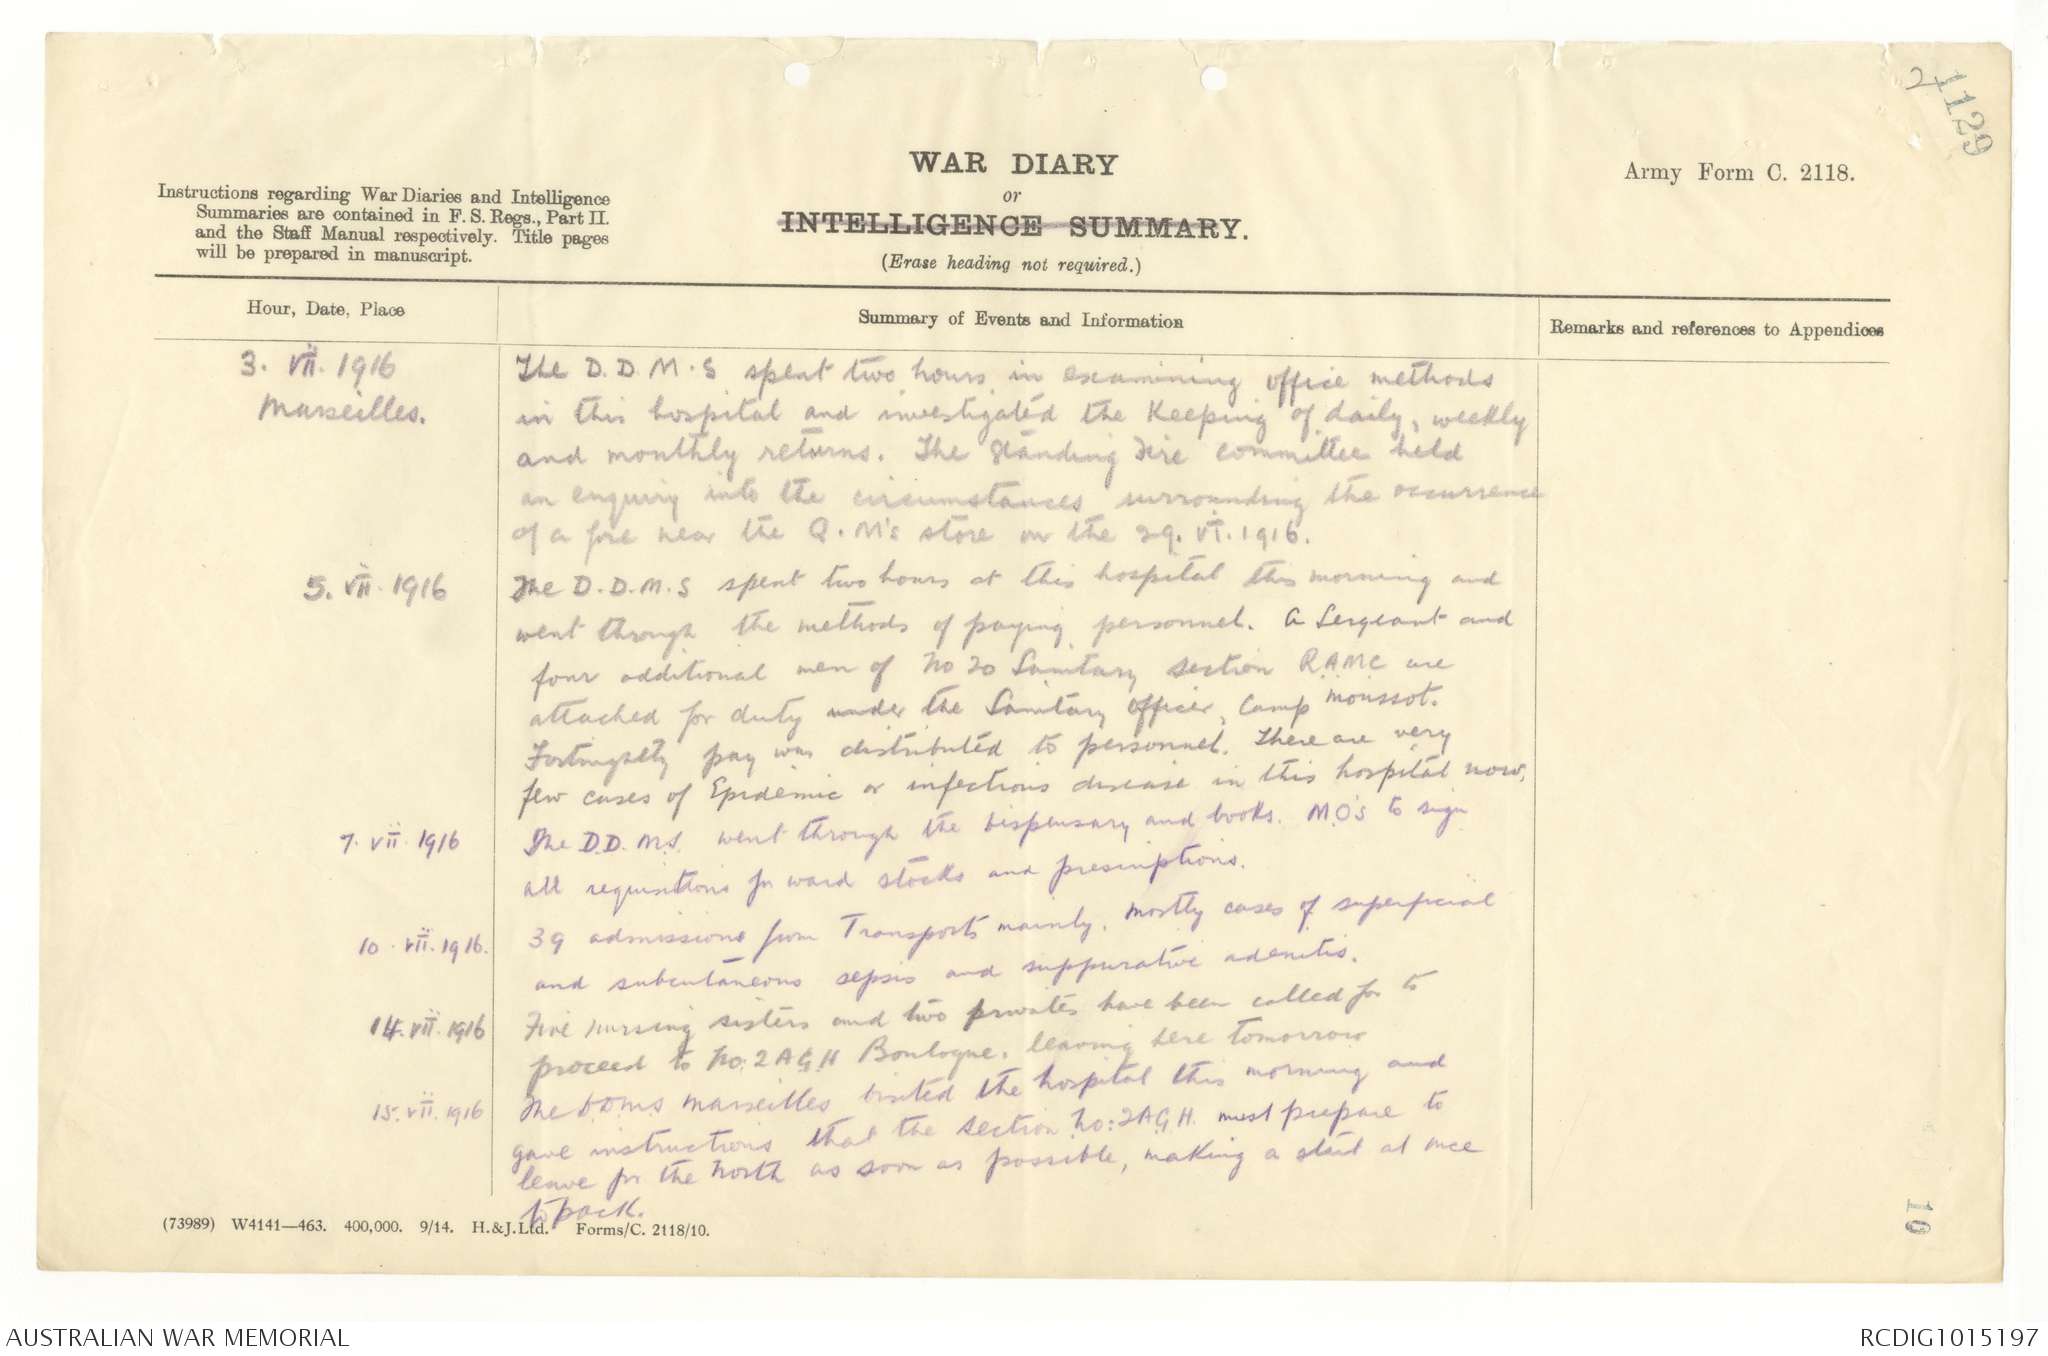 2
1129
WAR DIARY
or
INTELLIGENCE SUMMARY.
(Erase heading not required.)
Army Form C. 2118.
Instructions regarding War Diaries and Intelligence
Summaries are contained in F. S. Regs., Part II.
and the Staff Manual respectively. Title pages
will be prepared in manuscript.
Hour, Date, Place
Summary of Events and Information
Remarks and references to Appendices
3. VII. 1916
Marseilles.
The D.D.M.S spent two hours in examining office methods
in this hospital and investigated the Keeping of daily, weekly
and monthly returns. The Standing Fire committee held
an enquiry into the circumstances surrounding the occurrence
of a fire near the Q.M's store on the 29. VI. 1916.
5. VII. 1916
The D.D.M.S spent two hours at this hospital this morning and
went through the methods of paying personnel. A Sergeant and
four additional men of No 20 Sanitary section RAMC are
attached for duty under the Sanitary Officer, Camp Moussot.
Fortnightly pay was distributed to personnel. There are very
few cases of Epidemic or infectious disease in this hospital now.
7. VII. 1916
The D.D.M.S. went through the Dispensary and books. M.O's to sign
all requisitions for ward stocks and prescriptions.
10. VII. 1916.
39 admissions from Transports mainly. Mostly cases of superficial
and subcutaneous sepsis and suppurative adenitis.
14. VII. 1916
Five nursing sisters and two privates have been called for to
proceed to No. 2 AGH Boulogne, leaving here tomorrow
15. VII. 1916
The DDMS Marseilles visited the hospital this morning and
gave instructions that the section No: 2 A.G.H. must prepare to
leave for the North as soon as possible, making a start at once
to pack.
(73989) W4141—463. 400,000. 9/14. H.&J.Ltd. Forms/C. 2118/10.
10
AUSTRALIAN WAR MEMORIAL
RCDIG1015197